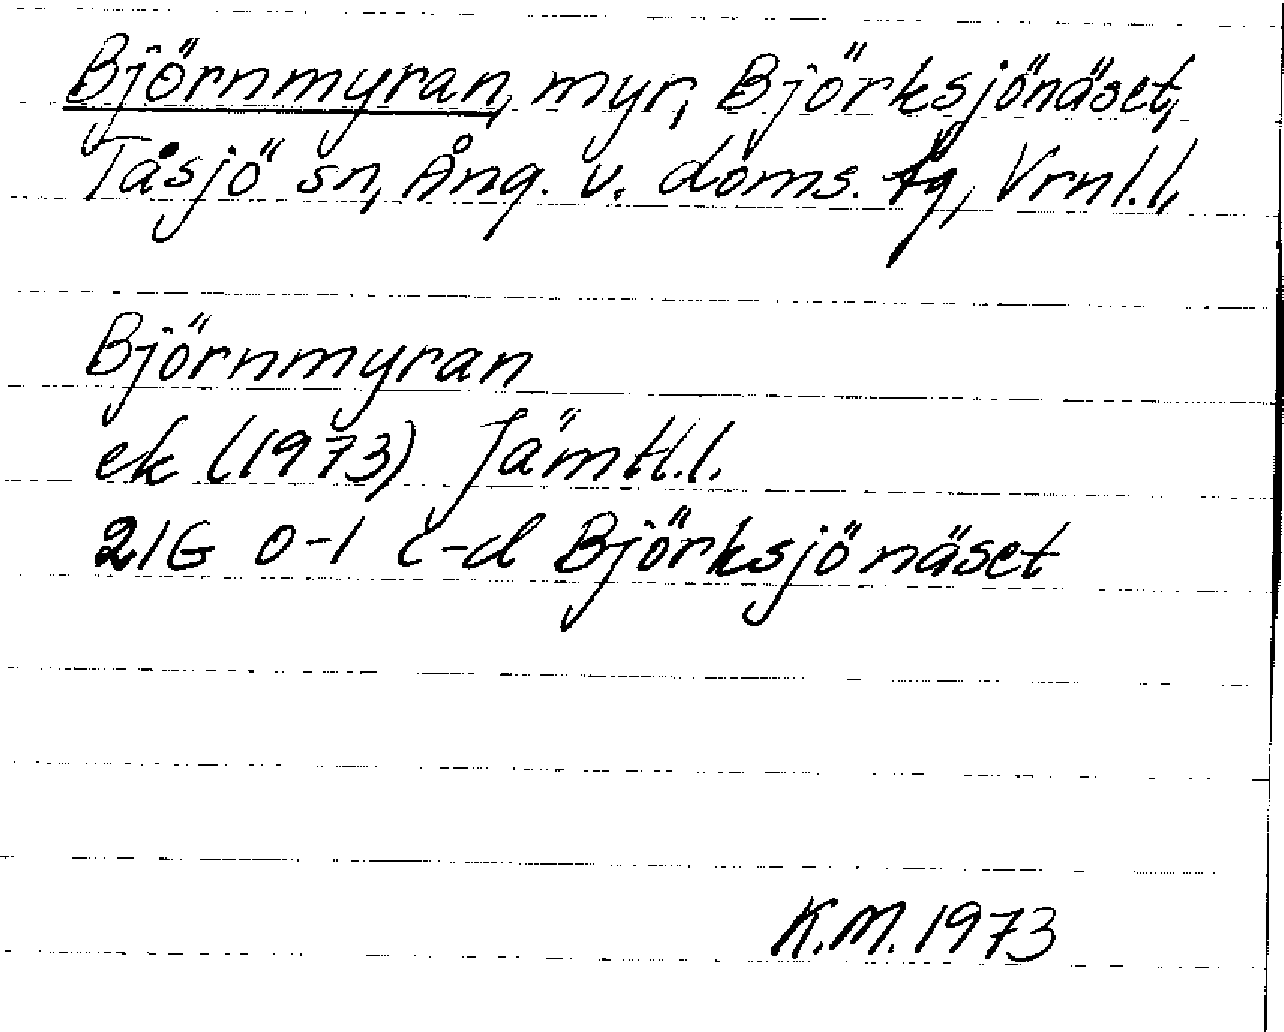 Björnmyran, myr, Björksjönäset,
Tåsjö sn, Ång. v. doms. tg, Vrnl.l.
Björnmyran
ek (1973) Jämtl.l.
21G 0-1 c-d Björksjönäset
K.M. 1973